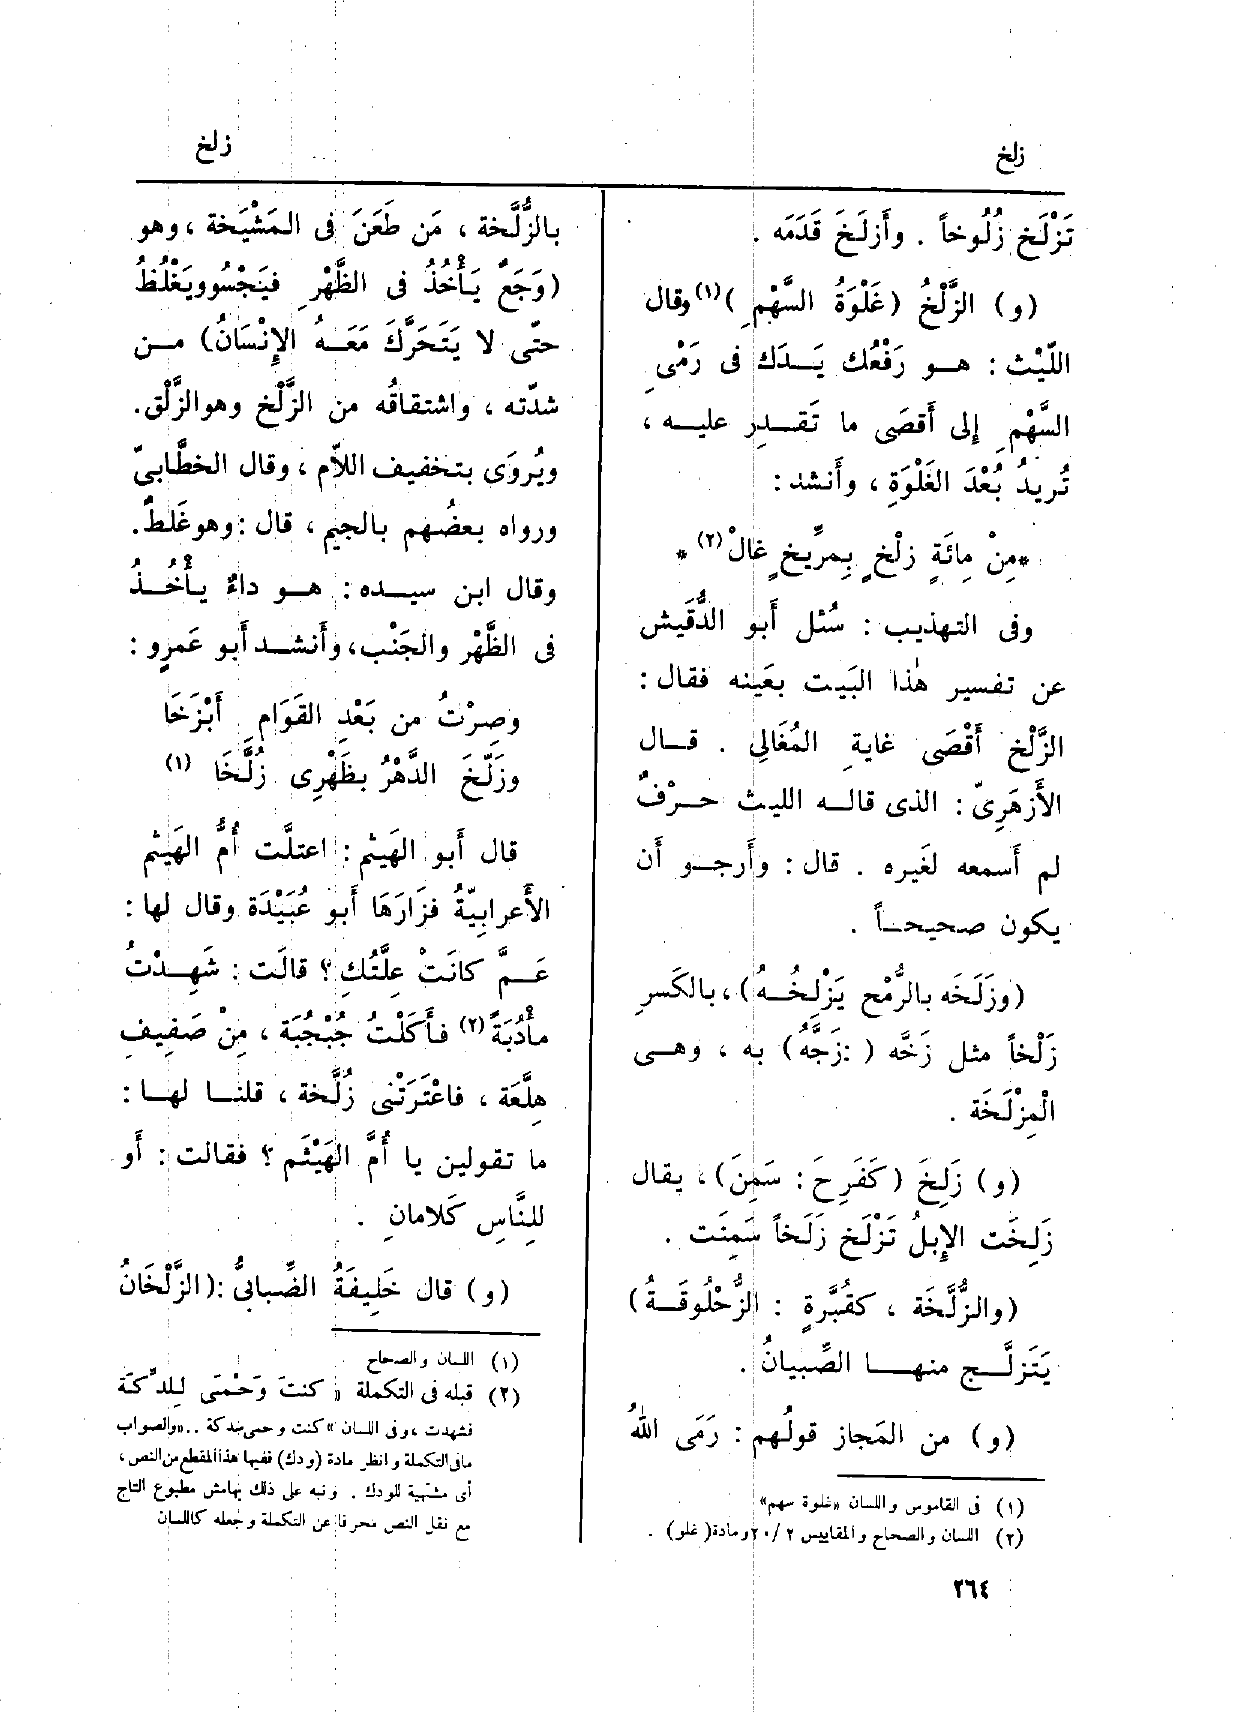 زلخ
زلخ
تَزْلَخ زُلُوخاً . وأَزلَخَ قَدَمَه .
(و) الزَّلْخُ (غَلْوَةُ السَّهْمِ)(١) وقال
اللَّيْث : هـو رَفْعُك يَـدَك فى رَمْىِ
السَّهْمِ إلى أَقصَى ما تَقـدِر عليـه ،
تُريدُ بُعْدَ الغَلْوَةِ ، وأَنشد :
*مِنْ مِائَةٍ زلْخٍ بِمرِّيخٍ غالْ(٢) *
وفى التهذيب : سُئل أَبو الدُّقَيش
عن تفسير هٰذا البَيت بعَينه فقال :
الزَّلْخ أَقْصَى غاية المُغَالِى . قـال
الأَزهَرِىّ : الذى قالـه الليث حـرْفٌ
لم أَسمعه لغَيره . قال : وأَرجـو أَن
يكون صحيحـاً .
(وزَلَخَه بالرُّمْح يَزْلِخُـهُ) ، بالكَسرِ
زَلْخاً مثل زَخَّه ( :زَجَّهُ) به ، وهـى
الْمِزْلَخَة .
(و) زَلِخَ (كفَرِحَ : سَمِنَ) ، يقال
زَلِخَت الإِبلُ تَزْلَخ زَلَخاً سَمِنَت .
(والزُّلَّخَة ، كقُبَّرةٍ : الزُّحْلُوقَـةُ)
يَتَزلَّـج منهـا الصِّبيانُ .
(و) من المَجاز قولُهم : رَمَى اللهُ
(١) فى القاموس واللسان «غلوة سهم»
(٢) اللسان والصحاح والمقاييس ٢ /٢٠ ومادة (غلو) .
بالزُّلَّخة ، مَن طَعَنَ فى المَشْيَخة ، وهو
(وَجَعٌ يَأْخُذُ فى الظَّهْرِ فيَجْسُو ويَغْلُظُ
حتّى لا يَتَحَرَّكَ مَعَـهُ الإِنْسَانُ) مـن
شدّته ، واشتقاقُه من الزَّلْخ وهو الزَّلْق.
ويُروَى بتخفيف اللاّم ، وقال الخطَّابىّ
ورواه بعضُهم بالجيم ، قال : وهو غَلَطٌ.
وقال ابن سيـده : هـو داءٌ يأْخُـذُ
فى الظَّهْر والجَنْب، وأَنشـد أَبو عَمرٍو :
وصِرْتُ من بَعْدِ القَوَامِ أَبْزَخَا
وزَلَّخَ الدَّهْرُ بظَهْرِى زُلَّخَا (١)
قال أَبو الهَيثم : اعتلَّت أُمُّ الهَيثم
الأَعرابيّةُ فزَارَهَا أَبو عُبَيْدَة وقال لها :
عَـمَّ كانَتْ عِلَّتُكِ ؟ قالَت : شَهِـدْتُ
مأْدُبَةً (٢) فأَكَلْتُ جُبْجُبَة ، مِنْ صَفِيفِ
هِلَّعَة ، فاعْتَرَتْنى زُلَّخة ، قلنـا لهـا :
ما تقولين يا أُمَّ الهَيْثَم ؟ فقالت : أَو
للِنَّاسِ كَلامانِ .
(و) قال خَلِيفَةُ الضِّبابىُّ : (الزَّلْخَانُ
(١) اللسان والصحاح
(٢) قبله فى التكملة « كنت وَحْمَى لِلدِّكَة
فشهدت ، وفى اللسان «كنت وحمى بدكة .. «والصواب
مافى التكملة وانظر مادة (ودك) ففيها هذا المقطع من النص ،
أى مشتهية للودك . ونبه على ذلك بهامش مطبوع التاج
مع نقل النص محرفا عن التكملة وجعله كاللسان
٢٦٤